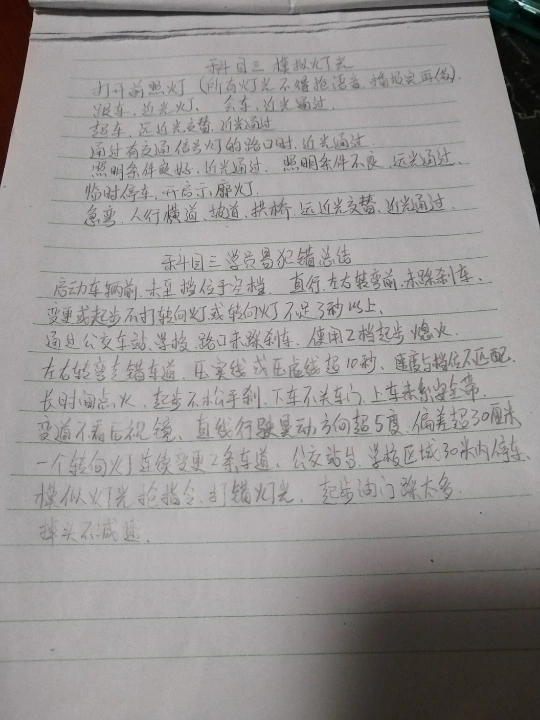 科目三 模拟灯光
打开前照灯 (所有灯光不得抢语音,播报完再做).
跟车,近光灯、会车,近光通过.
超车,远近光交替,近光通过
通过有交通信号灯的路口时,近光通过.
照明条件良好,近光通过. 照明条件不良,远光通过、
临时停车,开启示廓灯.
急弯、人行横道、坡道、拱桥、远近光交替、近光通过.
科目三学员易犯错总结
启动车辆前,未至挡位于空档. 直行,左右转弯前,未踩刹车、
变更或起步不打转向灯或转向灯不足3秒以上.
通过公交车站、学校、路口未踩刹车、使用2档起步熄火.
左右转弯走错车道、压实线或压虚线超10秒、速度与档位不匹配.
长时间点火、起步不松手刹、下车不关车门、上车未系安全带.
变道不看后视镜、直线行驶晃动方向超5度、偏差超30厘米
一个转向灯连续变更2条车道、公交站台、学校区域30米内停车.
模似灯光抢指令、打错灯光、起步油门踩太多.
掉头不减速.